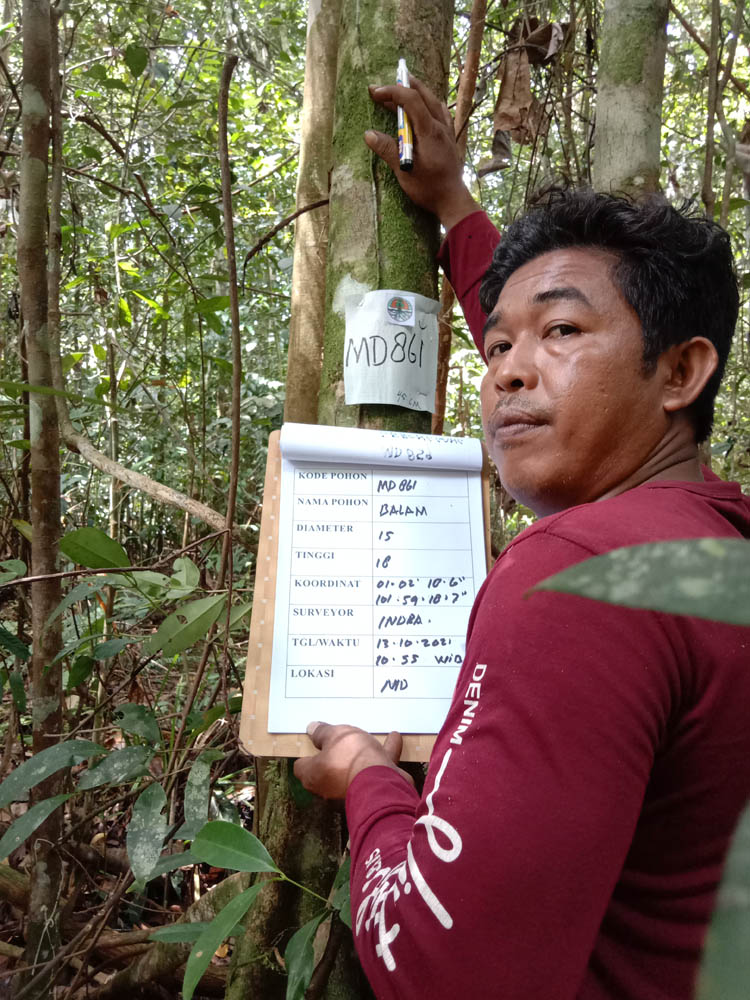 MD861
45 cm
MD 826
KODE POHON MD861
NAMA POHON BALAM
DIAMETER 15
TINGGI 18
KOORDINAT 01·02' 10·6"
101·59·18·7"
SURVEYOR INDRA.
TGL/WAKTU 13-10-2021
10·55 WIB
LOKASI MD
DENIM